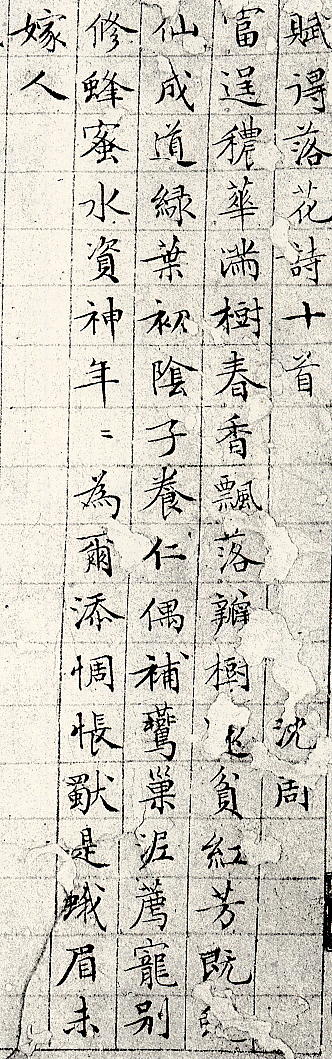 賦得落花詩十首 沈周
富逞穠華滿樹春香飄落瓣樹貧紅芳既
仙成道綠葉初陰子養仁偶補鸎巢泥薦寵別
修蜂蜜水資神年〻為爾添惆悵獨是蛾眉未
嫁人